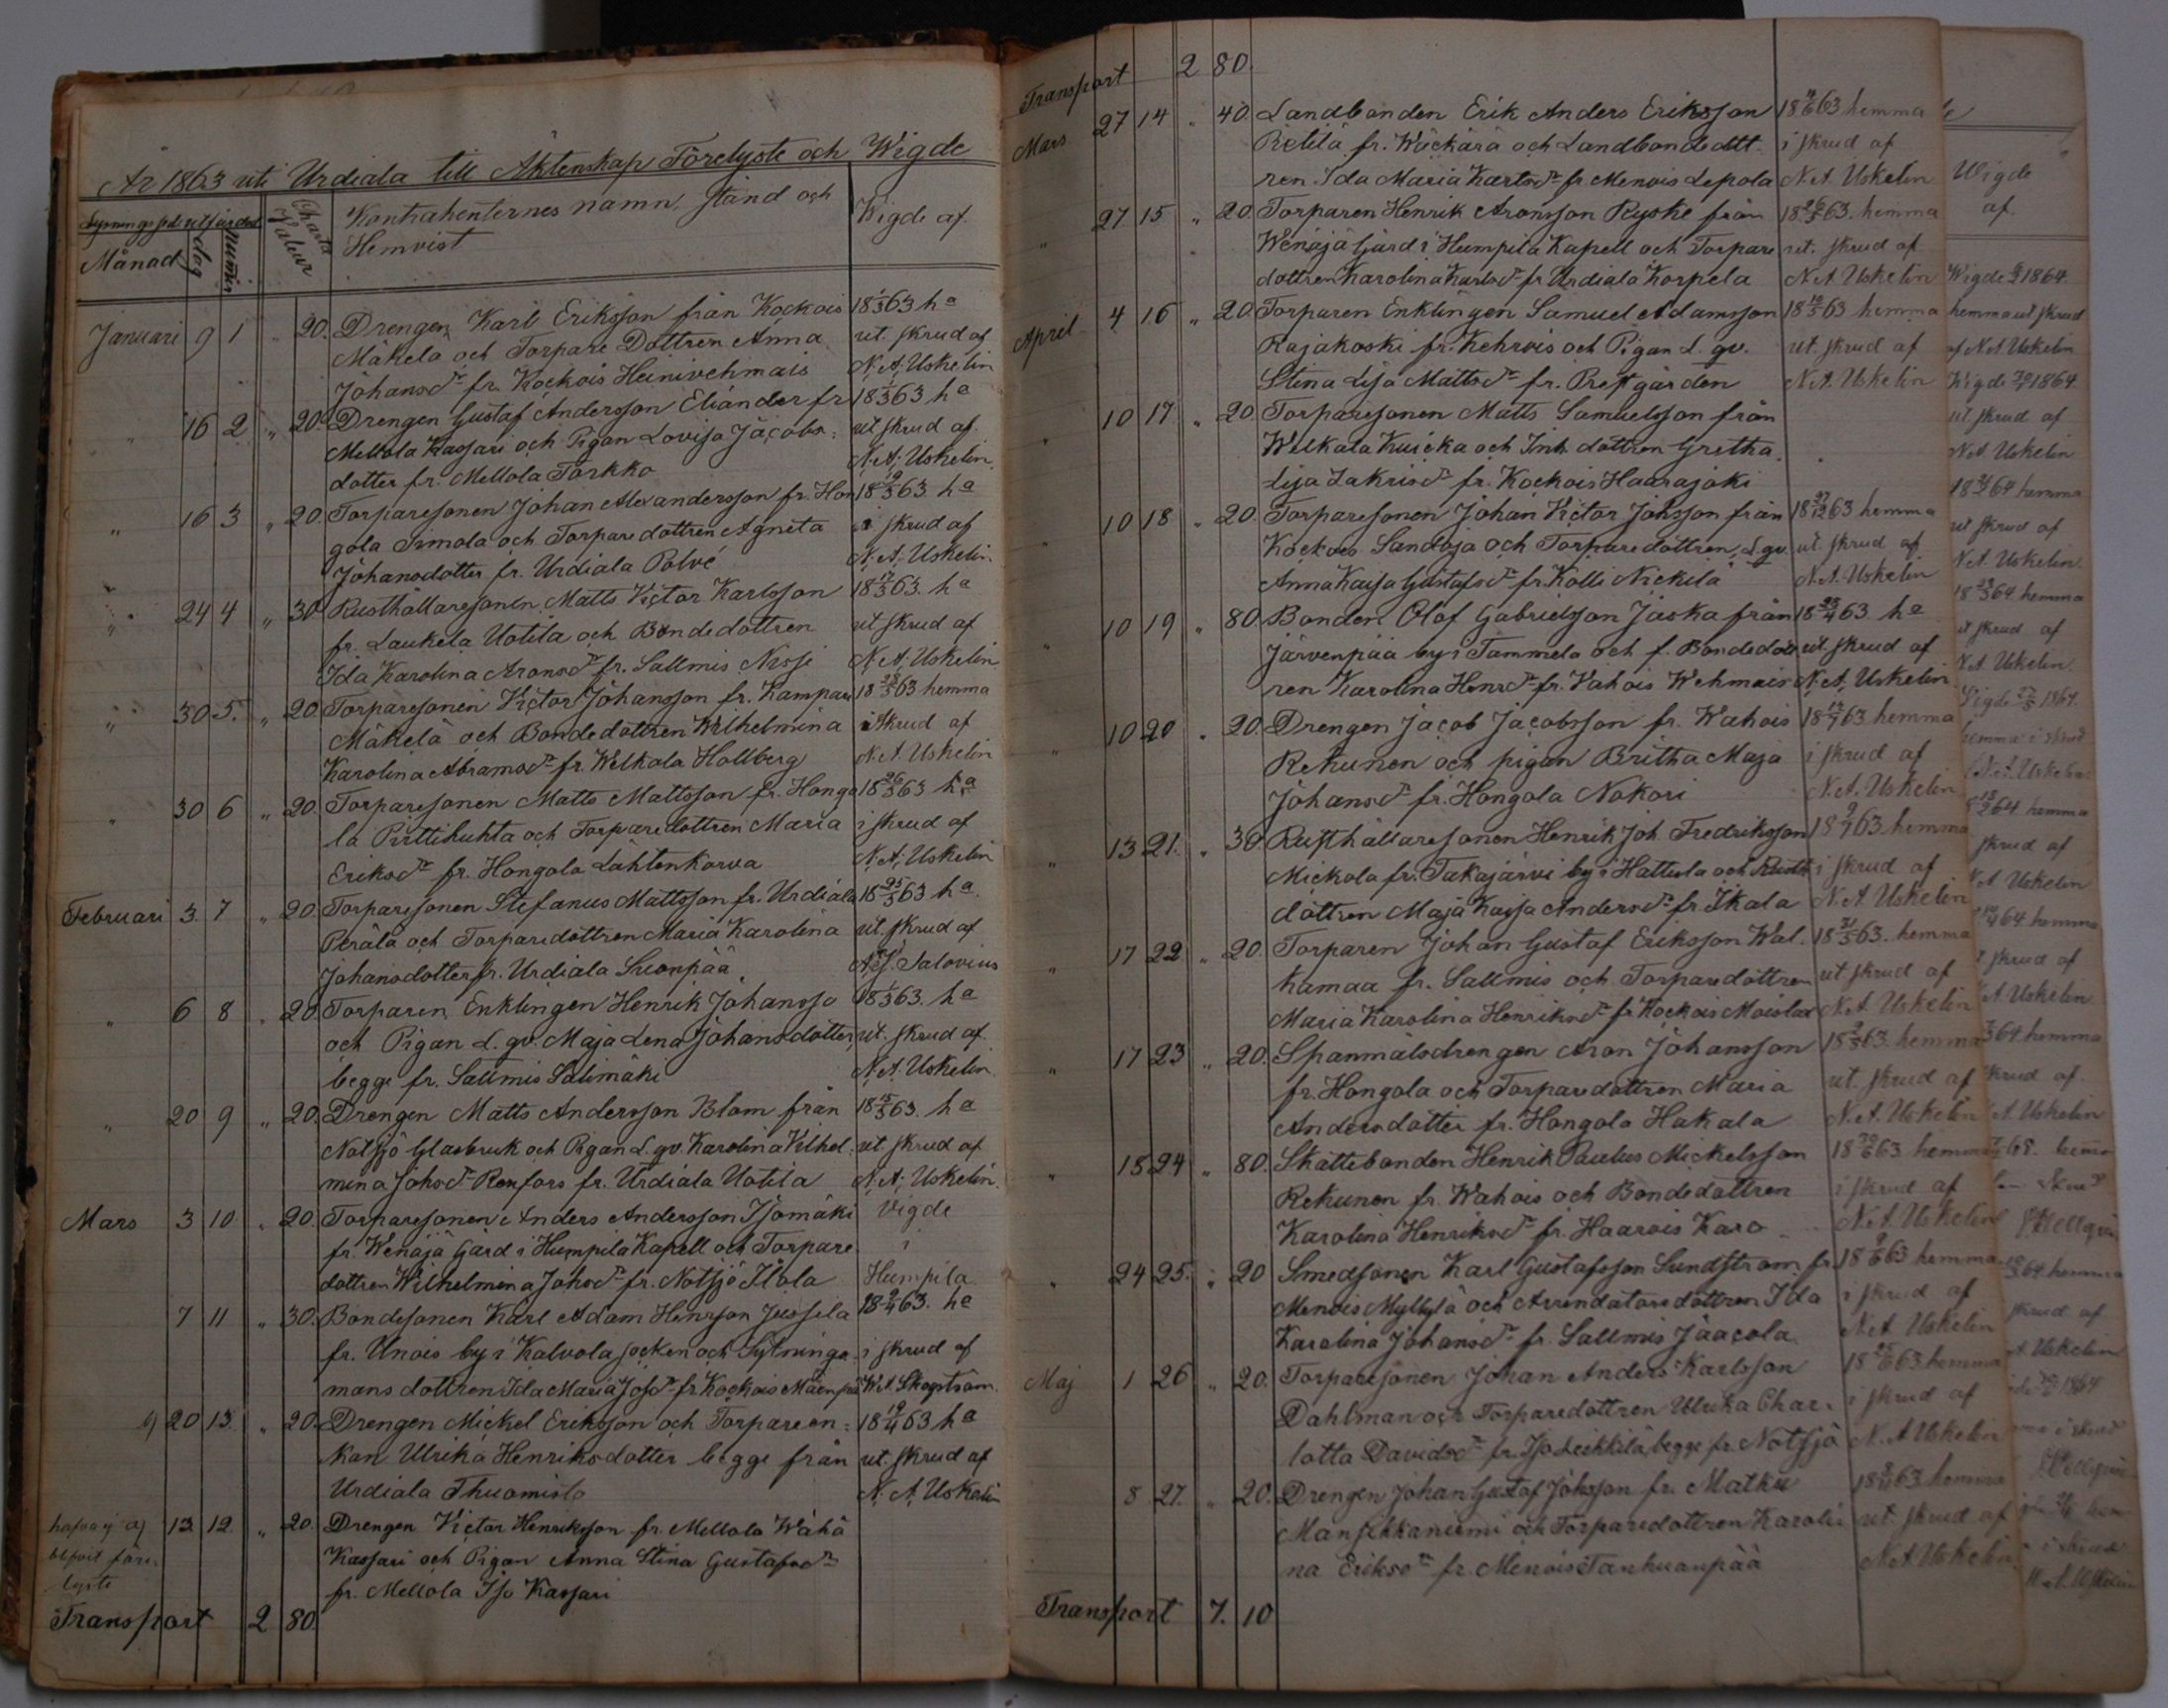 År 1863 uti Urdiala till Äktenskap Förelyste och Wigde
Lysningssedel utfärdad
Månad dag numer
Charta Valeur
Kontrahenternes namn, stånd och
Hemvist
Wigde af.
Januari 9 1 " 20. Drengen Karl Eriksson från Kockois 18 1/3 63 ha
Mäkelä och Torpare Dottren Anna ut. skrud af
Johansdr fr. Kockois Heinivehmais N. A. Uskelin
" 16 2 " 20. Drengen Gustaf Andersson Eliander fr 18 1/3 63 ha
Mellola Kassari och Pigan Lovisa Jacobs: ut skrud af.
dotter fr. Mellola Torkko N. A. Uskelin.
" 16 3 " 20. Torparesonen Johan Alexandersson fr. Hon 18 63 ha
gola Irmola och Torparedottren Agneta i skrud af
Johansdotter fr. Urdiala Polvé N. A. Uskelin.
" 24 4 " 30 Rusthållaresonen Matts Victor Karlsson 18 63. ha
fr. Laukela Uotila och Bondedottren ut skrud af
Ida Karolina Aronsdr fr. Sallmis Nissi N. A. Uskelin
" 30 5. " 20. Torparesonen Victor Johansson fr. Kampari 18 63 hemma
Mäkelä och Bondedottren Wilhelmina i skrud af
Karolina Abramsdr fr. Welkala Hollberg N. A. Uskelin
" 30 6 " 20. Torparesonen Matts Mattsson fr. Hongo 18 26/3 63 ha
la Pirttikuhta och Torparedottren Maria i skrud af
Eriksdr fr. Hongola Lähtenkorva N. A. Uskelin
Februari 3 7 " 20. Torparesonen Stefanus Mattsson fr. Urdiala 18 25/3 63 ha.
Perälä och Torparedottren Maria Karolina ut. skrud af
Johansdotter fr. Urdiala Suonpää Salovius
" 6 8 " 20. Torparen Enklingen Henrik Johansso 18 1/3 63. ha
och Pigan L. gv. Maja Lena Johansdotter, ut. skrud af.
begge fr. Sallmis Salimäki N. A. Uskelin.
" 20 9 " 20. Drengen Matts Andersson Blom från 18 15/3 63. ha
Notsjö Glasbruk och Pigan L. gv. Karolina Vilhel- ut skrud af
mina Johsdr Renfors fr. Urdiala Uotila N. A. Uskelin.
Mars 3 10 " 20. Torparesonen Anders Andersson Isomäki Vigde
fr. Wenäjä Gård i Humpila Kapell och Torpare i
dottren Wilhelmina Johsdr fr. Notsjö Ilola Humpila
7 11 " 30. Bondesonen Karl Adam Henrsson Jussila 18 9/4 63. ha
fr. Unois by i Kalvola socken och Sytninga- i skrud af
mans dottren Ida Maria Josdr fr Kockois Mäenpää W. A. Skogström.
20 13. " 20. Drengen Mickel Eriksson och Torpareen- 18 19/4 63 ha
kan Ulrika Henriksdotter begge från ut. skrud af
Urdiala Thuomisto N. A. Uskelin
hafva ej af 13 12. " 20. Drengen Victor Henriksson fr. Mellola Wähä
blifvit före- Kassari och Pigan Anna Stina Gustafsdr
lyste fr. Mellola Iso Kassari
Transport 2 80.
Transport 2 80.
Mars 27 14 " 40. Landbonden Erik Anders Eriksson 18 4/6 63 hemma
Pietilä fr. Wäckärä och Landbondedott- i skrud af
ren Ida Maria Karlsdr fr Menois Lepola N. A. Uskelin
" 27 15 " 20 Torparen Henrik Aronsson Ryske från 18 63. hemma
Wenäjä Gård i Humpila Kapell och Torpare ut. skrud af
dottren Karolina Karlsdr fr Urdiala Korpela N. A. Uskelin
April 4 16 " 20 Torparen Enklingen Samuel Adamsson 18 63 hemma
Rajakoski fr. Kehrois och Pigan L. gv. ut. skrud af
Stina Lisa Mattsdr fr. Prestgården N. A. Uskelin
" 10 17 " 20 Torparesonen Matts Samuelsson från
Welkala Kuicka och Inh. dottren Gretha
Lisa Zakrisdr fr. Kockois Haarajoki
" 10 18 " 20 Torparesonen Johan Victor Johsson från 18 27/12 63 hemma
Kockois Sandoja och Torparedottren, L. gv. ut. skrud af
Anna Kaisa Gustafsdr fr Kolli Nickilä N. A. Uskelin
" 10 19 " 80 Bonden Olof Gabrielsson Jaska från 18 23/4 63 ha
Järvenpää by i Tammela och f. Bondedott ut skrud af
ren Karolina Henrsdr fr. Vahois Wehmais N. A. Uskelin
" 10 20 " 20. Drengen Jacob Jacobsson fr. Wahois 18 63 hemma
Rekunen och pigan Britha Maja i skrud af
Johansdr fr. Hongola Nokori N. A. Uskelin
" 13 21. " 30 Rusthållaresonen Henrik Joh. Fredriksson 18 63 hemma
Mickola fr. Takajärvi by i Hattula och Rusth i skrud af
dottren Maja Kaisa Andersdr fr. Ikala N. A. Uskelin
" 17 22 " 20. Torparen Johan Gustaf Eriksson Wal- 18 31/5 63. hemma
kamaa fr. Sallmis och Torparedottren ut skrud af
Maria Karolina Henriksdr fr Kockois Moislad N. A. Uskelin
" 17 23 " 20. Spanmålsdrengen Aron Johansson 18 63. hemma
fr. Hongola och Torparedottren Maria ut. skrud af
Andersdotter fr. Hongola Hakala N. A. Uskelin
" 18 24 " 80. Skattebonden Henrik Paulus Mickelsson 18 63 hemma
Rekunen fr. Wahois och Bondedottren i skrud af
Karolina Henriksdr fr. Haarois Karo N. A. Uskelin
" 24 25. " 20 Smedsonen Karl Gustafsson Sundström fr 18 63 hemma
Menois Myllylä och Arrendatoredottren Ida i skrud af
Karolina Johansdr fr. Sallmis Jaacola N. A. Uskelin
Maj 1 26 " 20. Torparesonen Johan Anders Karlsson 18 63 hemma
Dahlman och Torparedottren Ulrika Char- i skrud af
lotta Davidsdr fr. Iso Leikkilä, begge fr Notsjö N. A. Uskelin
8 27. " 20. Drengen Johan Gustaf Johsson fr. Matku 18 63 hemma
Mansikkaniemi och Torparedottren Karoli- ut skrud af
na Eriksdr fr. Menois Tanhuanpää N. A. Uskelin
Transport 7. 10
Wigde
af.
Wigde 1864
hemma ut skrud
af N. A. Uskelin
Wigde 1864.
ut skrud af
N. A. Uskelin
18 64 hemma
ut skrud af
N. A. Uskelin.
18 64 hemma
ut skrud af
N. A. Uskelin.
Wigde 1864.
hemma i skrud
64 hemma
skrud af
N. A. Uskelin
64 hemma
skrud af
A. Uskelin
64 hemma
skrud af.
A. Uskelin
64 hemma
skrud af
A. Uskelin
1864
i skrud